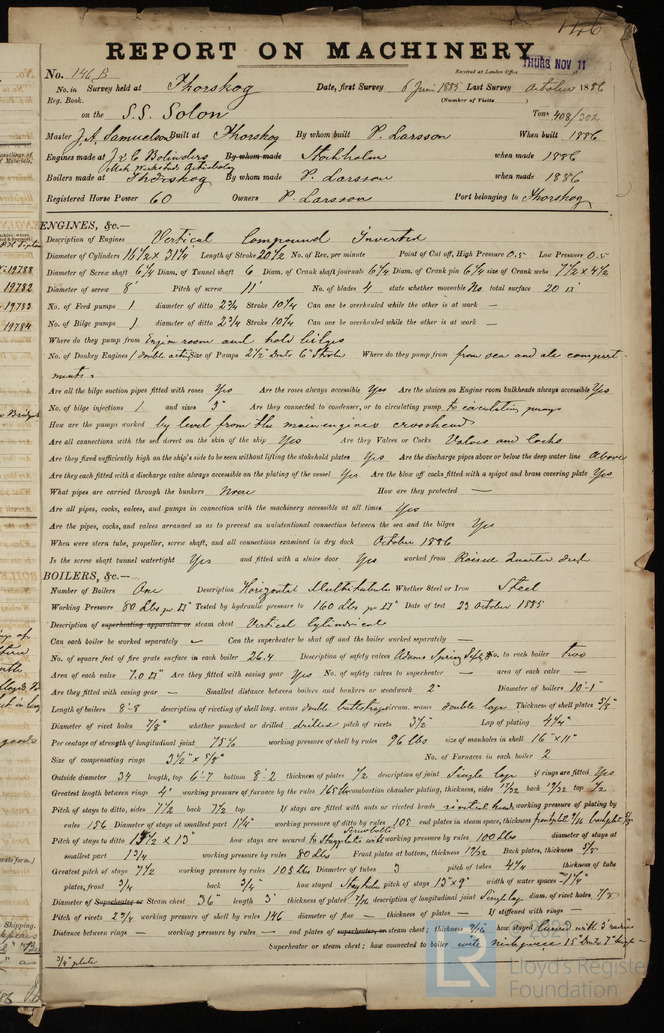 146
REPORT ON MACHINERY
THURS NOV 11
No. 146 B
Received at London Office
No. in Survey held at Thorskog Date, first Survey 6 Juni 1885 Last Survey October 1886
Reg. Book. (Number of Visits
on the S.S. Solon Tons 408/302
Master J. A. Samuelson Built at Thorskog By whom built P. Larsson When built 1886
Engines made at J & C Bolinders By whom made Stockholm when made 1886
Mek. Werkstads
Boilers made at Thorskog By whom made P. Larsson when made 1886
Registered Horse Power 60 Owners P. Larsson Port belonging to Thorskog
ENGINES, &c.—
Description of Engines Vertical Compound Inverted
Diameter of Cylinders 16 1/2 x 31 1/4 Length of Stroke 20 1/2 No. of Rev. per minute Point of Cut off, High Pressure 0.5 Low Pressure 0.5
Diameter of Screw shaft 6 1/4 Diam. of Tunnel shaft 6 Diam. of Crank shaft journals 6 1/4 Diam. of Crank pin 6 1/4 size of Crank webs 7 1/2 x 4 1/2
Diameter of screw 8' Pitch of screw 11' No. of blades 4 state whether moveable No total surface 20 □'
No. of Feed pumps 1 diameter of ditto 2 3/4 Stroke 10 1/4 Can one be overhauled while the other is at work —
No. of Bilge pumps 1 diameter of ditto 2 3/4 Stroke 10 1/4 Can one be overhauled while the other is at work —
Where do they pump from Engine room and hold bilges
No. of Donkey Engines 1 double acting Size of Pumps 2 1/2" 6" Stroke Where do they pump from from sea and all compart-
ments.
Are all the bilge suction pipes fitted with roses Yes Are the roses always accessible Yes Are the sluices on Engine room bulkheads always accessible Yes
No. of bilge injections 1 and sizes 3" Are they connected to condenser, or to circulating pump to circulating pumps
How are the pumps worked by level from the main engines crosshead
Are all connections with the sea direct on the skin of the ship Yes Are they Valves or Cocks Valves and Cocks
Are they fixed sufficiently high on the ship's side to be seen without lifting the stokehold plates Yes Are the discharge pipes above or below the deep water line above
Are they each fitted with a discharge valve always accessible on the plating of the vessel Yes Are the blow off cocks fitted with a spigot and brass covering plate Yes
What pipes are carried through the bunkers None How are they protected —
Are all pipes, cocks, valves, and pumps in connection with the machinery accessible at all times Yes
Are the pipes, cocks, and valves arranged so as to prevent an unintentional connection between the sea and the bilges Yes
When were stern tube, propeller, screw shaft, and all connections examined in dry dock October 1886
Is the screw shaft tunnel watertight Yes and fitted with a sluice door Yes worked from Raised Quarter deck
BOILERS, &c.—
Number of Boilers One Description Horizontal Multitubular Whether Steel or Iron Steel
Working Pressure 80 Lbs pr □" Tested by hydraulic pressure to 160 Lbs pr □" Date of test 23 October 1885
Description of superheating apparatus or steam chest Vertical Cylindrical
Can each boiler be worked separately Can the superheater be shut off and the boiler worked separately —
No. of square feet of fire grate surface in each boiler 26.4 Description of safety valves Adams Spring Safety No. to each boiler two
Area of each valve 7.0 □" Are they fitted with easing gear Yes No. of safety valves to superheater — area of each valve —
Are they fitted with easing gear — Smallest distance between boilers and bunkers or woodwork 2" Diameter of boilers 10'-1"
Length of boilers 8'-8 description of riveting of shell long. seams double buttstraps circum. seams double laps Thickness of shell plates 5/8"
Diameter of rivet holes 7/8" whether punched or drilled drilled pitch of rivets 3 1/2 Lap of plating 4 1/4"
Per centage of strength of longitudinal joint 75% working pressure of shell by rules 96 lbs size of manholes in shell 16" x 11"
Size of compensating rings 3 1/2" x 5/8" No. of Furnaces in each boiler 2
Outside diameter 34 length, top 6'-7 bottom 8'-2 thickness of plates 1/2 description of joint Single lap if rings are fitted Yes
Greatest length between rings 4' working pressure of furnace by the rules 165 lbs combustion chamber plating, thickness, sides 17/32 back 17/32 top 1/2
Pitch of stays to ditto, sides 7 1/2 back 7 1/2 top If stays are fitted with nuts or riveted heads riveted heads working pressure of plating by
rules 156 Diameter of stays at smallest part 1 1/4" working pressure of ditto by rules 105 end plates in steam space, thickness
Pitch of stays to ditto 13 1/2 x 13" how stays are secured to working pressure by rules 100 Lbs diameter of stays at
smallest part 1 3/4 working pressure by rules 80 Lbs Front plates at bottom, thickness 19/32 Back plates, thickness 5/8"
Greatest pitch of stays 7 1/2 working pressure by rules 105 Lbs Diameter of tubes 3 pitch of tubes 4 1/4 thickness of tube
plates, front 3/4 back 3/4" how stayed Staytubes pitch of stays 13" x 9" width of water spaces 1 1/4"
Diameter of Superheater or Steam chest 36" length 3' thickness of plates 7/16 description of longitudinal joint Single lap diam. of rivet holes 7/8
Pitch of rivets 2 3/4 working pressure of shell by rules 146 diameter of flue — thickness of plates — If stiffened with rings —
Distance between rings — working pressure by rules — end plates of superheater, or steam chest; thickness 9/16 how stayed
Superheater or steam chest; how connected to boiler with
3/4" plate
© 2022
LR
Lloyd's Register
Foundation